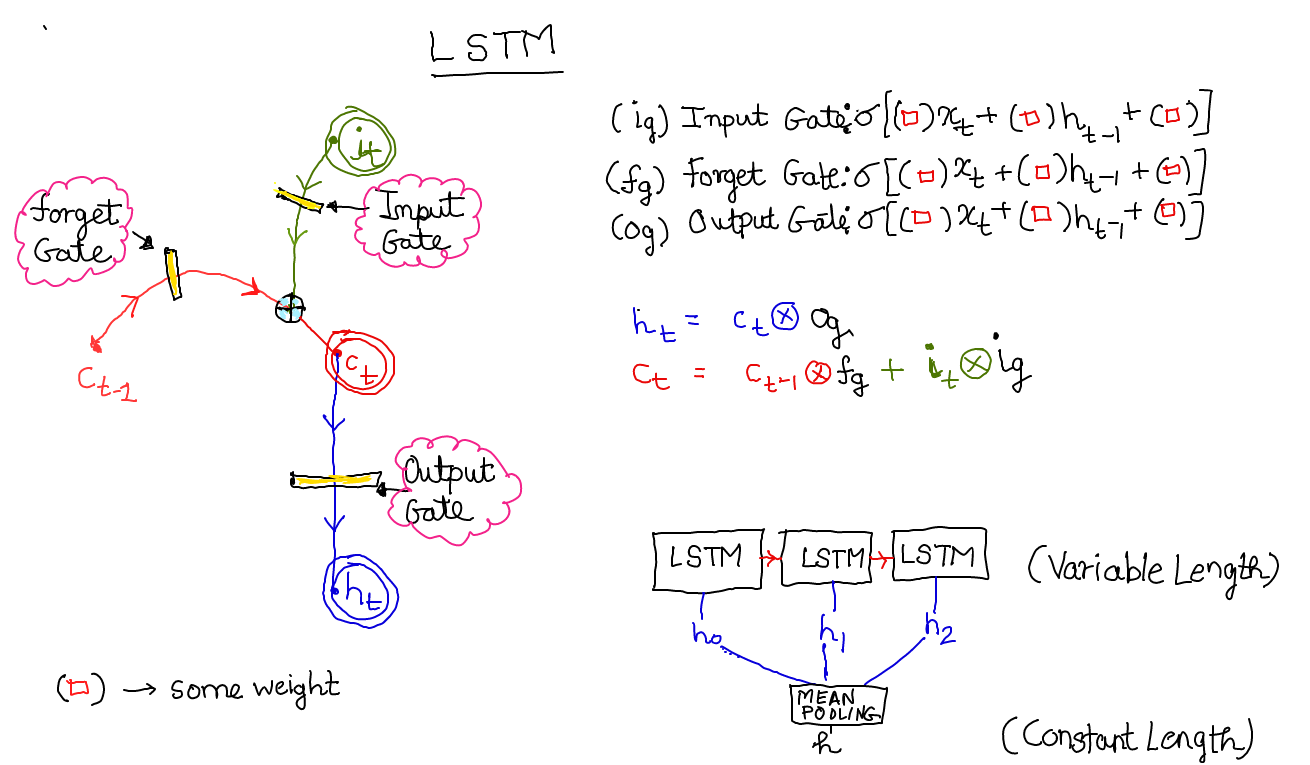 LSTM
it
Forget
Gate
Input
Gate
C_{t-1}
C_t
Output
Gate
h_t
(□) → some weight
(ig) Input Gate: σ[(□)x_t + (□)h_{t-1} + (□)]
(fg) Forget Gate: σ[(□)x_t + (□)h_{t-1} + (□)]
(og) Output Gate: σ[(□)x_t + (□)h_{t-1} + (□)]
h_t = c_t ⊗ og
c_t = c_{t-1} ⊗ fg + i_t ⊗ ig
LSTM LSTM LSTM
(Variable Length)
h_0 h_1 h_2
MEAN
POOLING
h
(Constant Length)